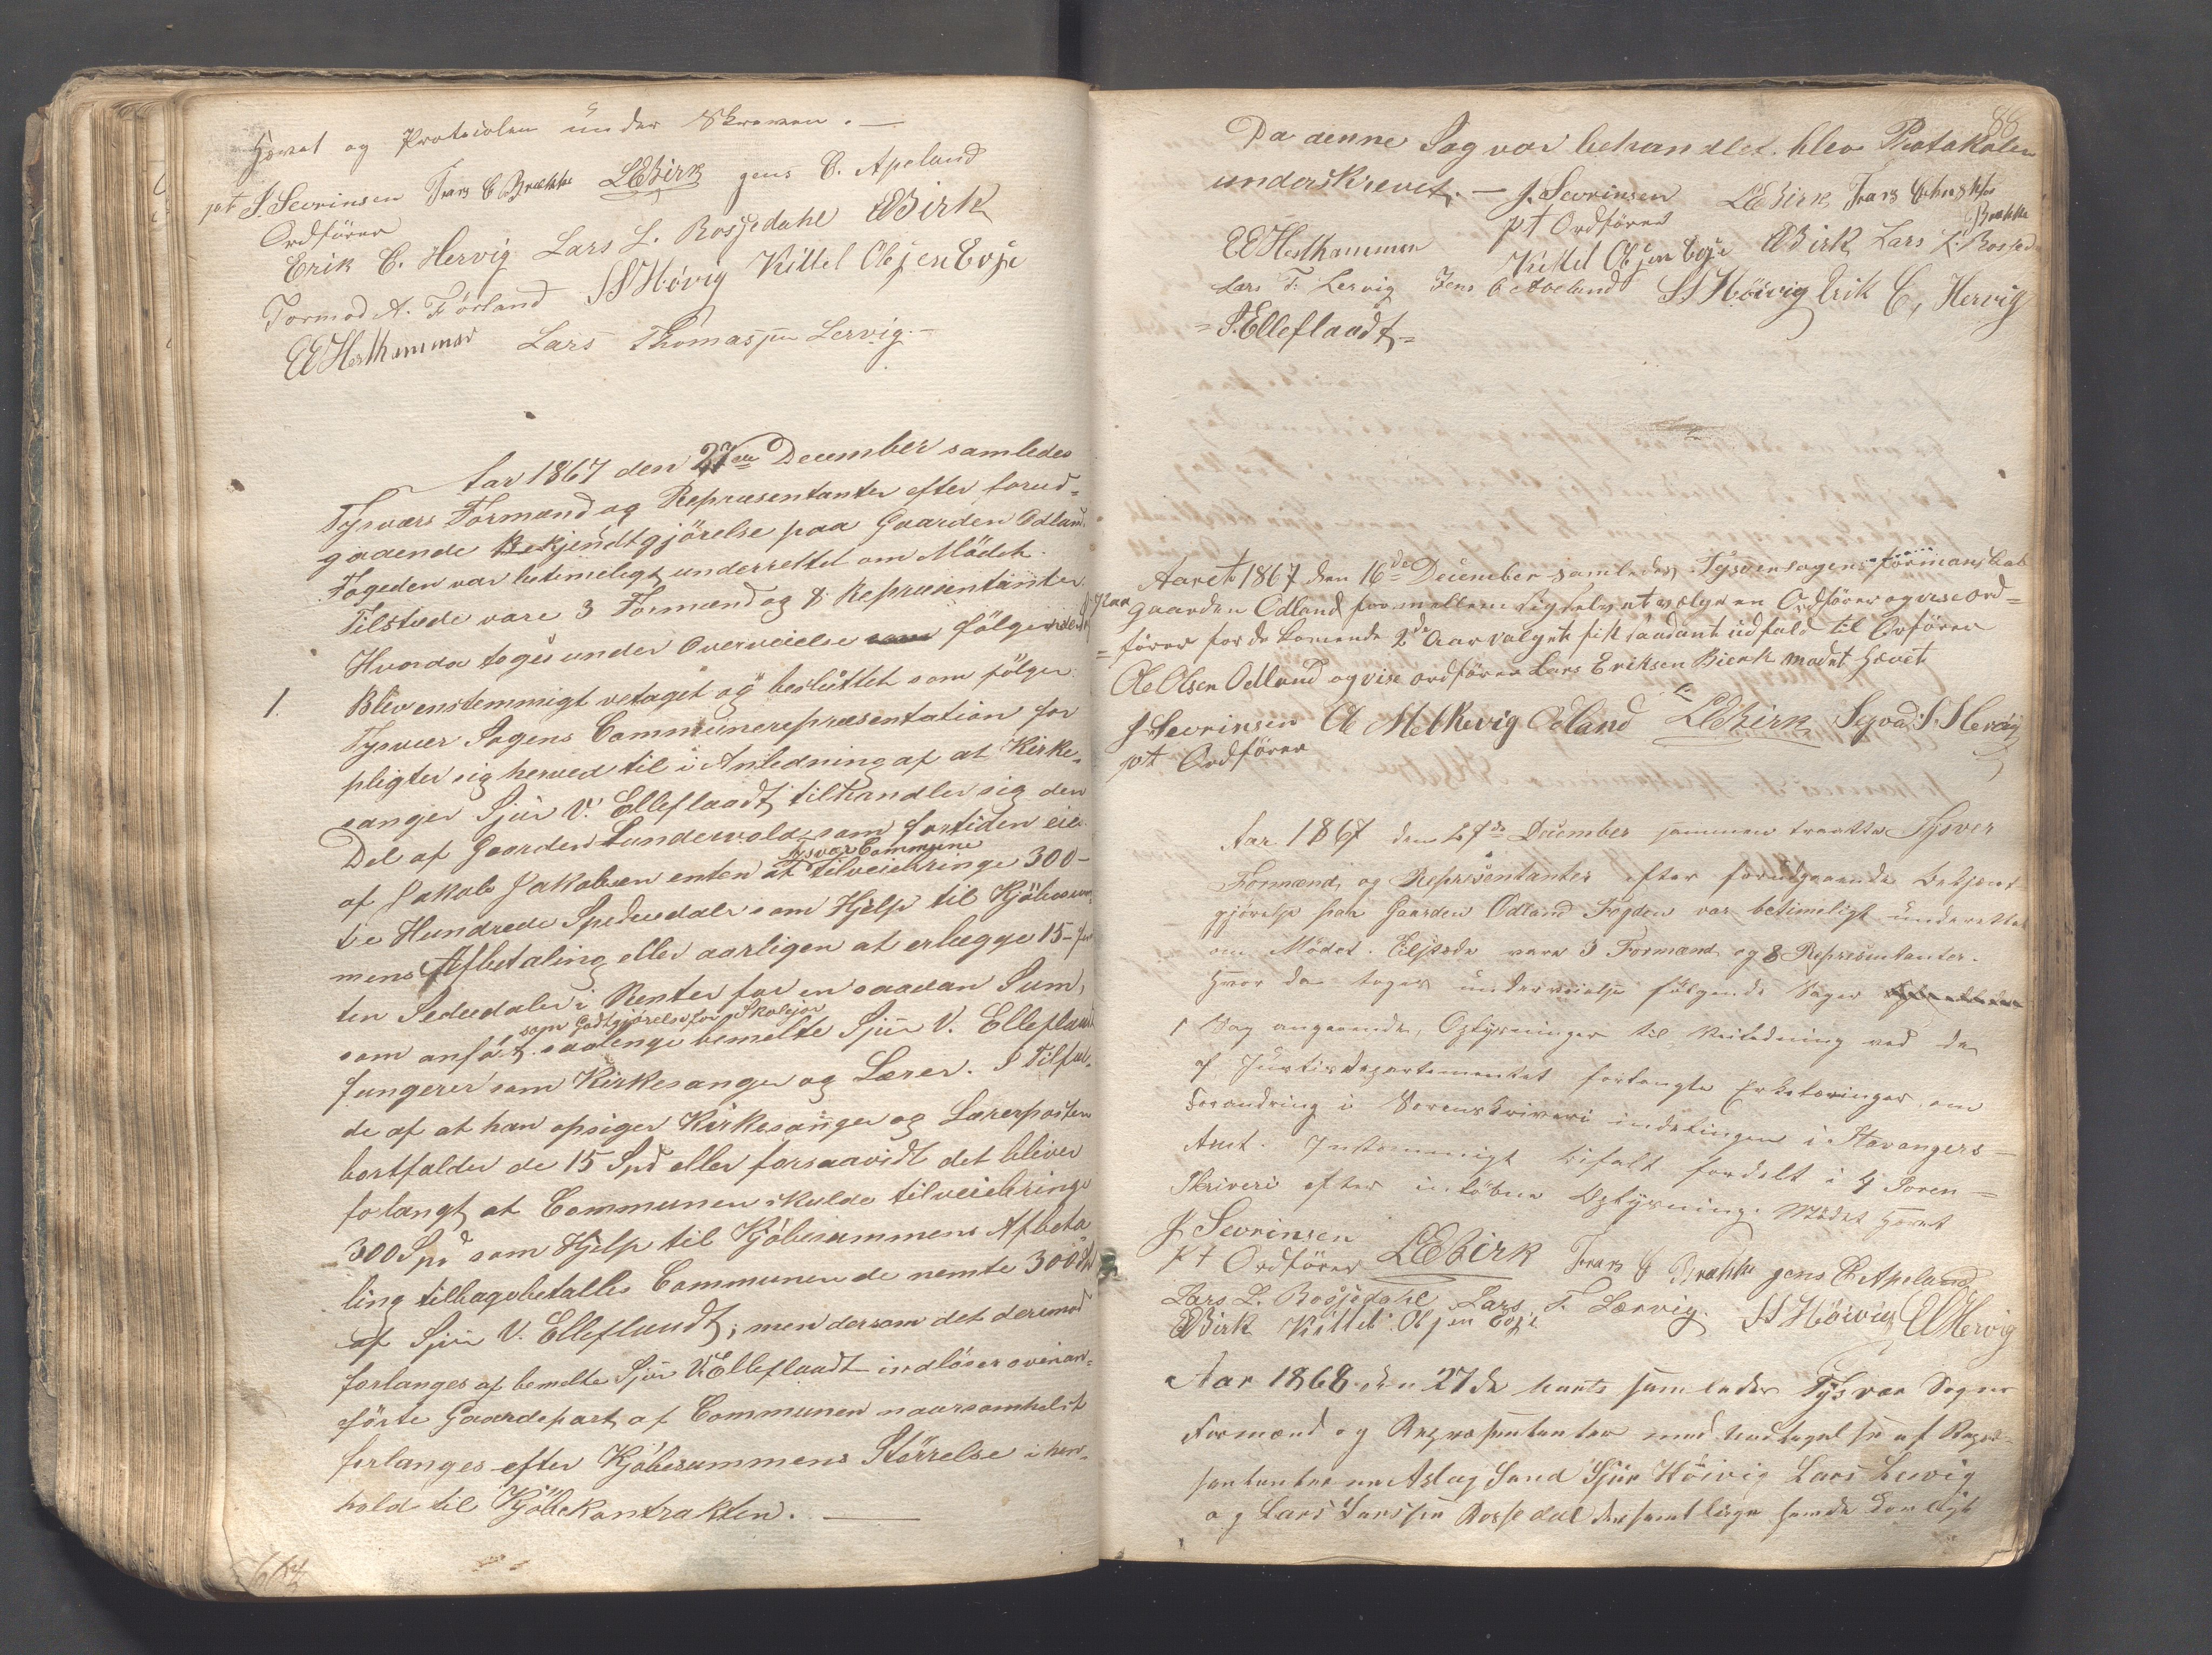 Hævet og Protocolen under Skreven. —
pt S. Sevrinsen Frans C Brekke LEBirk Jens C. Apeland
Ordfører
Erik C. Hervig Lars L. Rossedahl EBirk
Tormod A. Førland SSHövig Kittel Olsen Evje
EEHesthammer Lars Thomassen Lervig. —
Aar 1867 den 27de December samledes
Tysværs Formænd og Repræsentanter efter forud-
gaaende Bekjendtgjörelse paa Gaarden Odland.
Fogeden var betimeligt underrettet om Mödet.
Tilstede vare 3 Formænd og 8 Repræsentanter
Hvorda toges under Overveielse som fölgende
1. Blev enstemmigt vetaget og besluttet som fölger:
Tysvær Sogens Communerepræsentation for
pligter sig herved til i Anledning af at Kirke-
sanger Sjur V. Elleflaadt, tilhandler sig den
Del af Gaarden Sundervold, som fortiden eies
af Jakob Jakobsen enten at Tilveiebringe 300-
Tysvær Commune
tre Hundrede Speciedaler som Hjelp til Kjöbesum-
mens Afbetaling eller aarligen at erlægge 15- fem
ten Spedaler i Renter for en saadan Sum,
som Godtgjörelse for Skolejor
som anfört, saalenge bemelte Sjur V. Elleflaadt
fungerer som Kirkesanger og Lærer. I Tilfæl-
de af at han opsiger Kirkesanger og Lærerposten
bortfalder de 15 Spd eller forsaavidt det bliver
forlangt, at Communen skulde tilveiebringe
300 Spd som Hjelp til Kjöbesummens Afbeta
ling tilbagebetalles Communen de nemte 300 Spd
af Sjur V. Elleflaadt; men dersom det derimod
forlanges af bemelte Sjur V Elleflaadt indlöser ovenan-
förte Gaardepart af Communen naarsomhelst
forlanges efter Kjöbesummens Störrelse i hen-
hold til Kjöbekontrakten. —
88
Da denne Sag var behandlet blev Protokolen
underskrevet. — J. Sevrinsen LEBirk, Frans Christofer
pt Ordförer Brekke
EEHesthammer Kittel Olsen Evje EBirk Lars L. Rossed
Lars T. Lervig Jens C Apeland SSHöivig Erik C, Hervig
= S. Elleflaadt =
Aaret 1867 den 16de December samledes Tysversogens formanskab
paa gaarden Odland for mellem sig selv at velge en Ordförer og vise ord=
=förer for de komende 2de Aar valget fik saadant udfald til Orförer
Ole Olsen Odland og vise ordförer Lars Eriksen Bierk modet Hævet
J Sevrinsen Ol Melkevig Odland LEBirk Syvad S. Hervig
pt Ordförer
Aar 1867 den 27de December sammen traatte Tysver
Formænd, og Representanter efter forudgaaende bekjent
gjörelse paa Gaarden Odland Fogden var betimeligt underettet
om Mödet. Tilstede vare 3 Formænd og 8 Representanter.
Hvor da toges underveielse fölgende Sager
1 Sag angaaende, Oplysninger til Veiledning ved de
af Justisdepartementet forlangte Erklæringer om
Forandring i Sorenskriveri indelingen i Stavangers —
Amt. Instemmigt bifalt fordelt i 4 Soren =
Skriveri efter indløbne Oplysning. Mödet Hævet
J Sevrinsen
pt Ordförer LEBirk Frans C Brekke Jens C Apeland
Lars L. Rossedahl Lars T. Lærvig. SSHöivig EHervig
EBirk Kittel Olsen Evje
Aar 1868 den 27de Marts samledes Tysvær Sogns
Formænd og Repræsentanter med undtagelse af Repræ-
sentanterne Aslag Sund Sjur Höivig Lars Lervig
og Lars Larssen Rossedal